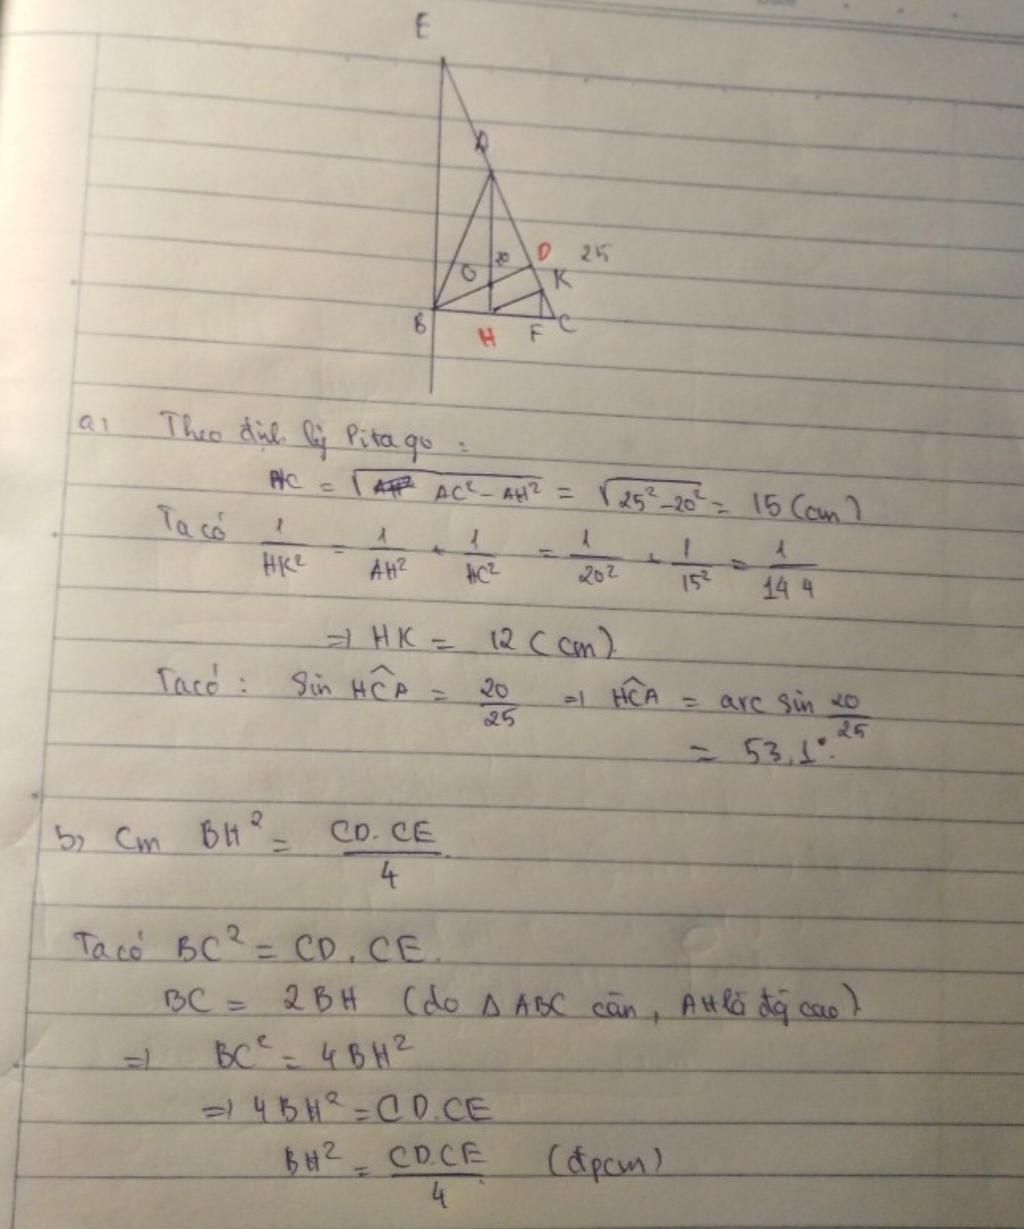 E
A
D 25
O 20
K
B H F C
a, Theo định lý Pitago :
HC = √(AC² - AH²) = √(25² - 20²) = 15 (cm)
Ta có 1/HK² = 1/AH² + 1/HC² = 1/20² + 1/15² = 1/144
=> HK = 12 (cm)
Ta có : Sin HCA = 20/25 => HCA = arc sin 20/25
= 53,1°.
b, Cm BH² = CD.CE/4
Ta có BC² = CD.CE.
BC = 2BH (do Δ ABC cân, AH là đg cao)
=> BC² = 4BH²
=> 4BH² = CD.CE
BH² = CD.CE/4 (đpcm)